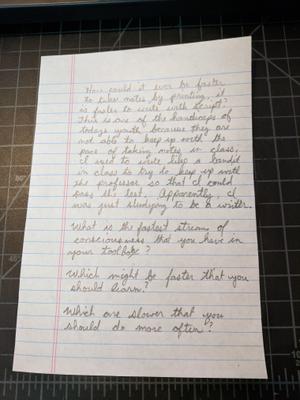 How could it ever be faster
to take notes by printing, it
is faster to write with script?
This is one of the handicaps of
todays youth, because they are
not able to keep up with the
pace of taking notes in class,
I used to write like a bandit
in class to try to keep up with
the professor so that I could
pass his test. Apparently, I
was just studying to be a writer.
What is the fastest stream of
consciousness that you have in
your toolbox?
Which might be faster that you
should learn?
Which are slower that you
should do more often?